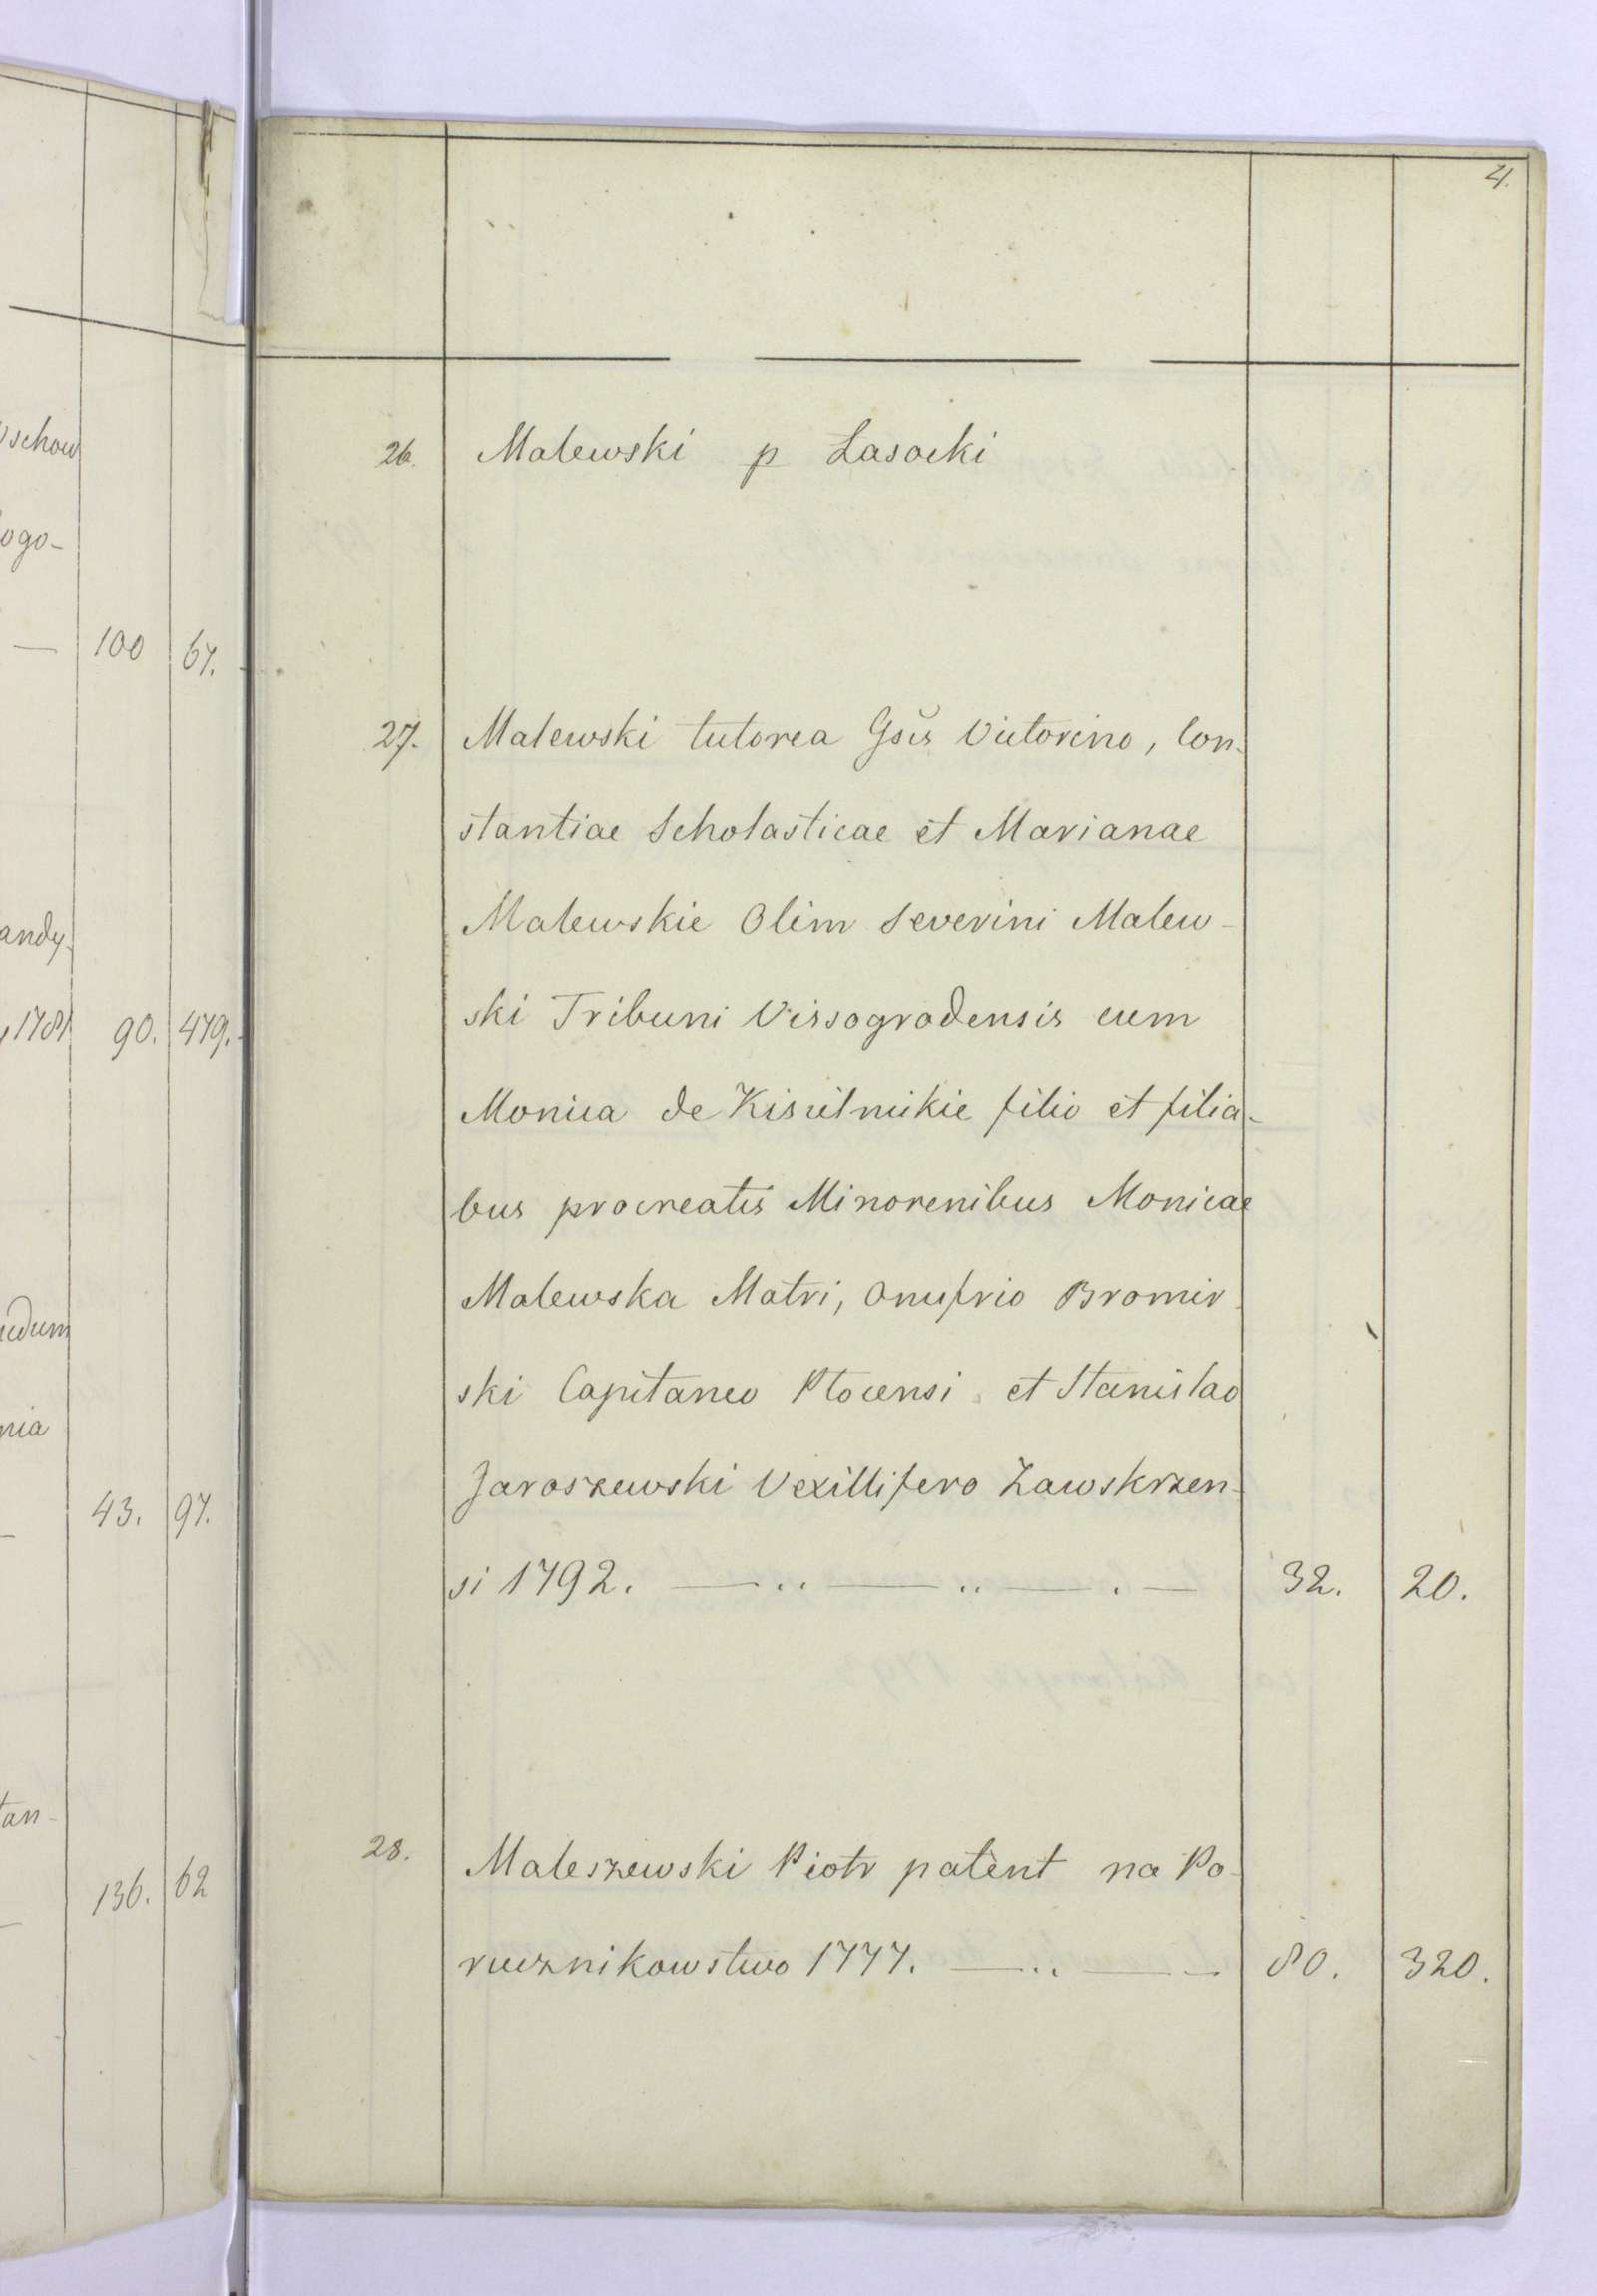 4.
schow
ogo-
— 100 67.
andy-
1781 90. 479.
nia
43. 97.
tan-
136. 62
26. Malewski p Lasocki
27. Malewski tutorea Gsis Victorino, Con-
stantiae Scholasticae et Marianae
Malewskie Olim Severini Malew-
ski Tribuni Vissogrodensis cum
Monica de Kisielnickie filio et filia-
bus procreatis Minorenibus Monicae
Malewska Matri, Onufrio Bromir-
ski Capitaneo Plocensi et Stanislao
Jaroszewski Vexillifero Zawskrzen-
si 1792. — .. — .. — . — 32. 20.
28. Maleszewski Piotr patent na Po-
rucznikowstwo 1777. — .. — - 80. 320.